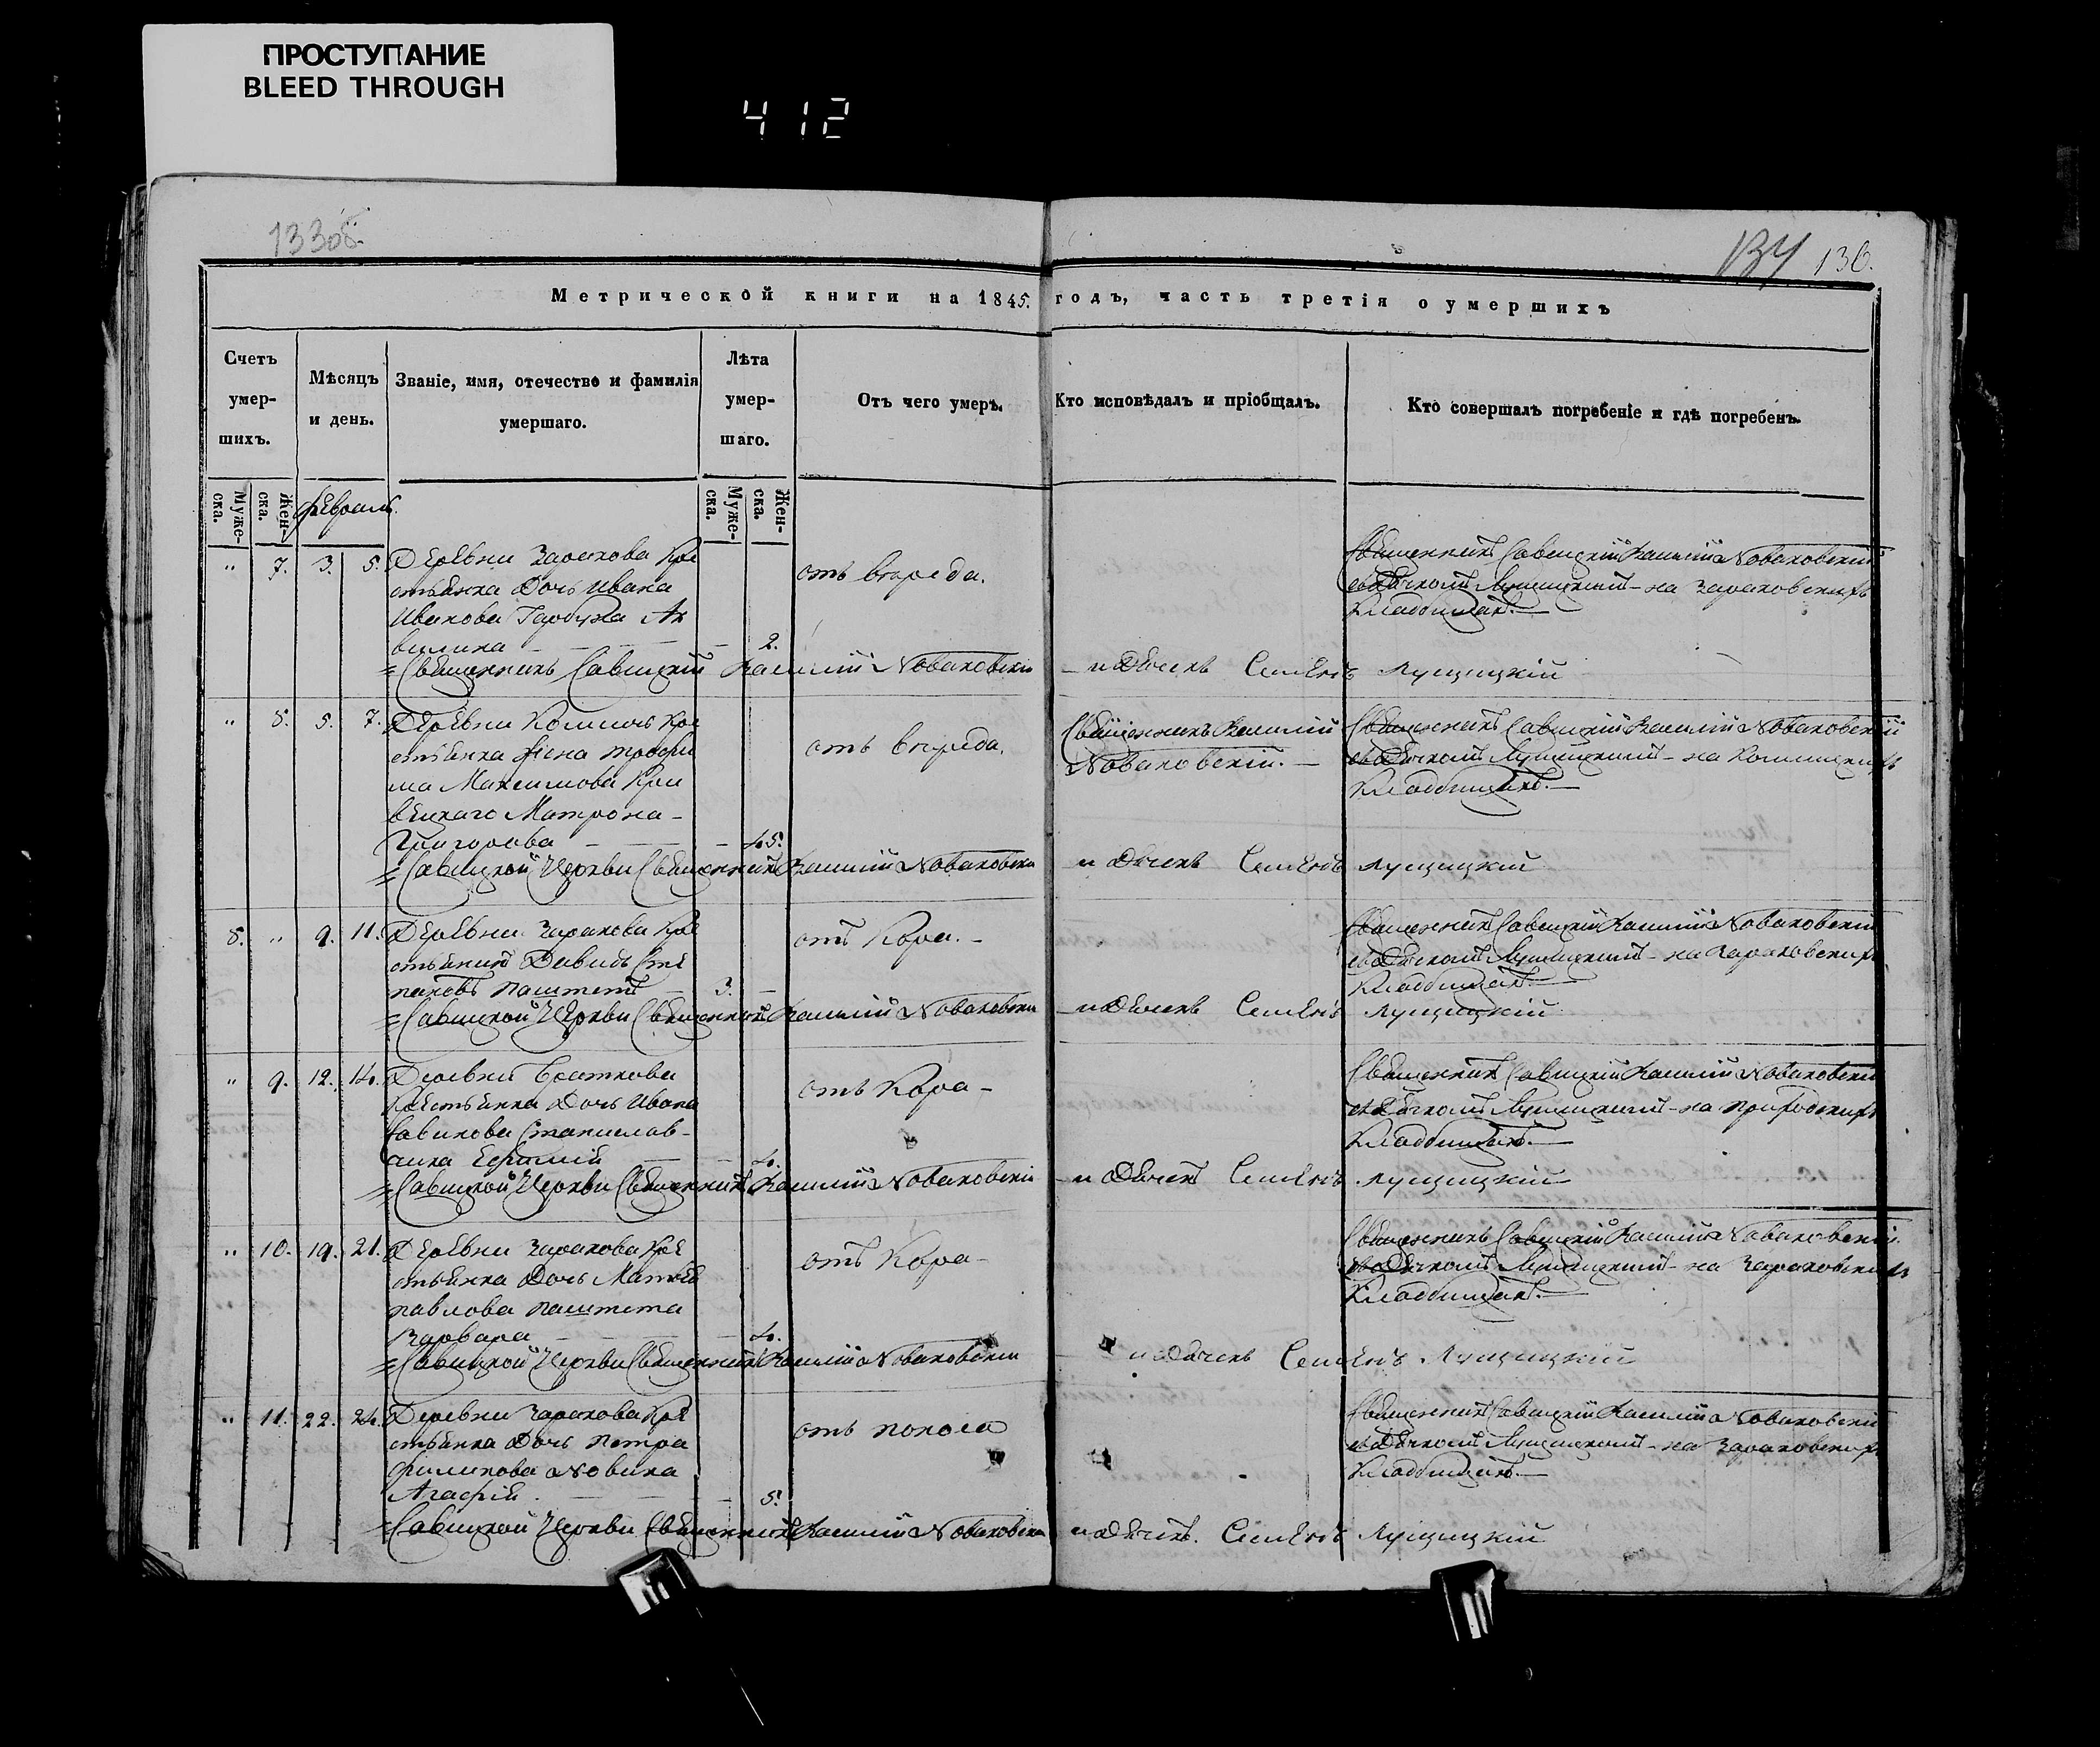 ПРОСТУПАНИЕ
BLEED THROUGH
412
133об.
134 136.
Метрической книги на 1845. годъ, часть третія о умершихъ
Счетъ умер-шихъ.
Мѣсяцъ и день.
Званіе, имя, отечество и фамилія умершаго.
Лѣта умер-шаго.
Отъ чего умеръ.
Кто исповѣдалъ и пріобщалъ.
Кто совершалъ погребеніе и гдѣ погребенъ.
Муже-ска.
Жен-ска.
февраль.
Муже-ска.
Жен-ска.
" 7. 3. 5. Деревни Заракова Кре
стьянка Дочь Ивана
Иванова Гарбуза Ак
вилина — 2.
отъ вереда.
Священникъ Савицкій Василій Новаковскій
съ Дьячкомъ Лущицкимъ - на Зараковскихъ
Кладбищахъ.—
Священникъ Савицкій Василій Новаковскій — и Дьячекъ Семенъ Лущицкій
" 8. 5. 7. Деревни Кре
стьянка Жена Трофи
ма Максимова Кри
вецкаго Матрона -
Григорова — 45.
отъ вереда.
Священникъ Василій
Новаковскій. —
Священникъ Савицкій Василій Новаковскій
съ Дьячкомъ Лущицкимъ - на
Кладбищахъ.—
Савицкой Церкви Священникъ Василій Новаковскій и Дьячекъ Семенъ Лущицкій
8. " 9. 11. Деревни Заракова Кре
стьянинъ Давидъ Сте
пановъ Паштетъ — 3. —
отъ Кора. -
Священникъ Савицкій Василій Новаковскій
съ Дьячкомъ Лущицкимъ - на Зараковскихъ
Кладбищахъ.—
Савицкой Церкви Священникъ Василій Новаковскій — и Дьячекъ Семенъ Лущицкій
" 9. 12. 14. Деревни Браткова
Крестьянка Дочь Ивана
Савикова Станислав-
чика — 4.
отъ Кора -
Священникъ Савицкій Василій Новаковскій
съ Дьячкомъ Лущицкимъ - на Приходскихъ
Кладбищахъ.—
Савицкой Церкви Священникъ Василій Новаковскій — и Дьячекъ Семенъ Лущицкій
" 10. 19. 21. Деревни Заракова Кре
стьянка Дочь Матвея
Павлова Паштета
Варвара — 4.
отъ Кора -
Священникъ Савицкій Василій Новаковскій
съ Дьячкомъ Лущицкимъ - на Зараковскихъ
Кладбищахъ.—
Савицкой Церкви Священникъ Василій Новаковскій и Дьячекъ Семенъ Лущицкій
" 11. 22. 24. Деревни Заракова Кре
стьянка Дочь Петра
Филипова Новика
Агафій. — 5.
отъ поноса
Священникъ Савицкій Василій Новаковскій
съ Дьячкомъ Лущицкимъ - на Зараковскихъ
Кладбищахъ.—
Савицкой Церкви Священникъ Василій Новаковскій и Дьячекъ. Семенъ Лущицкій